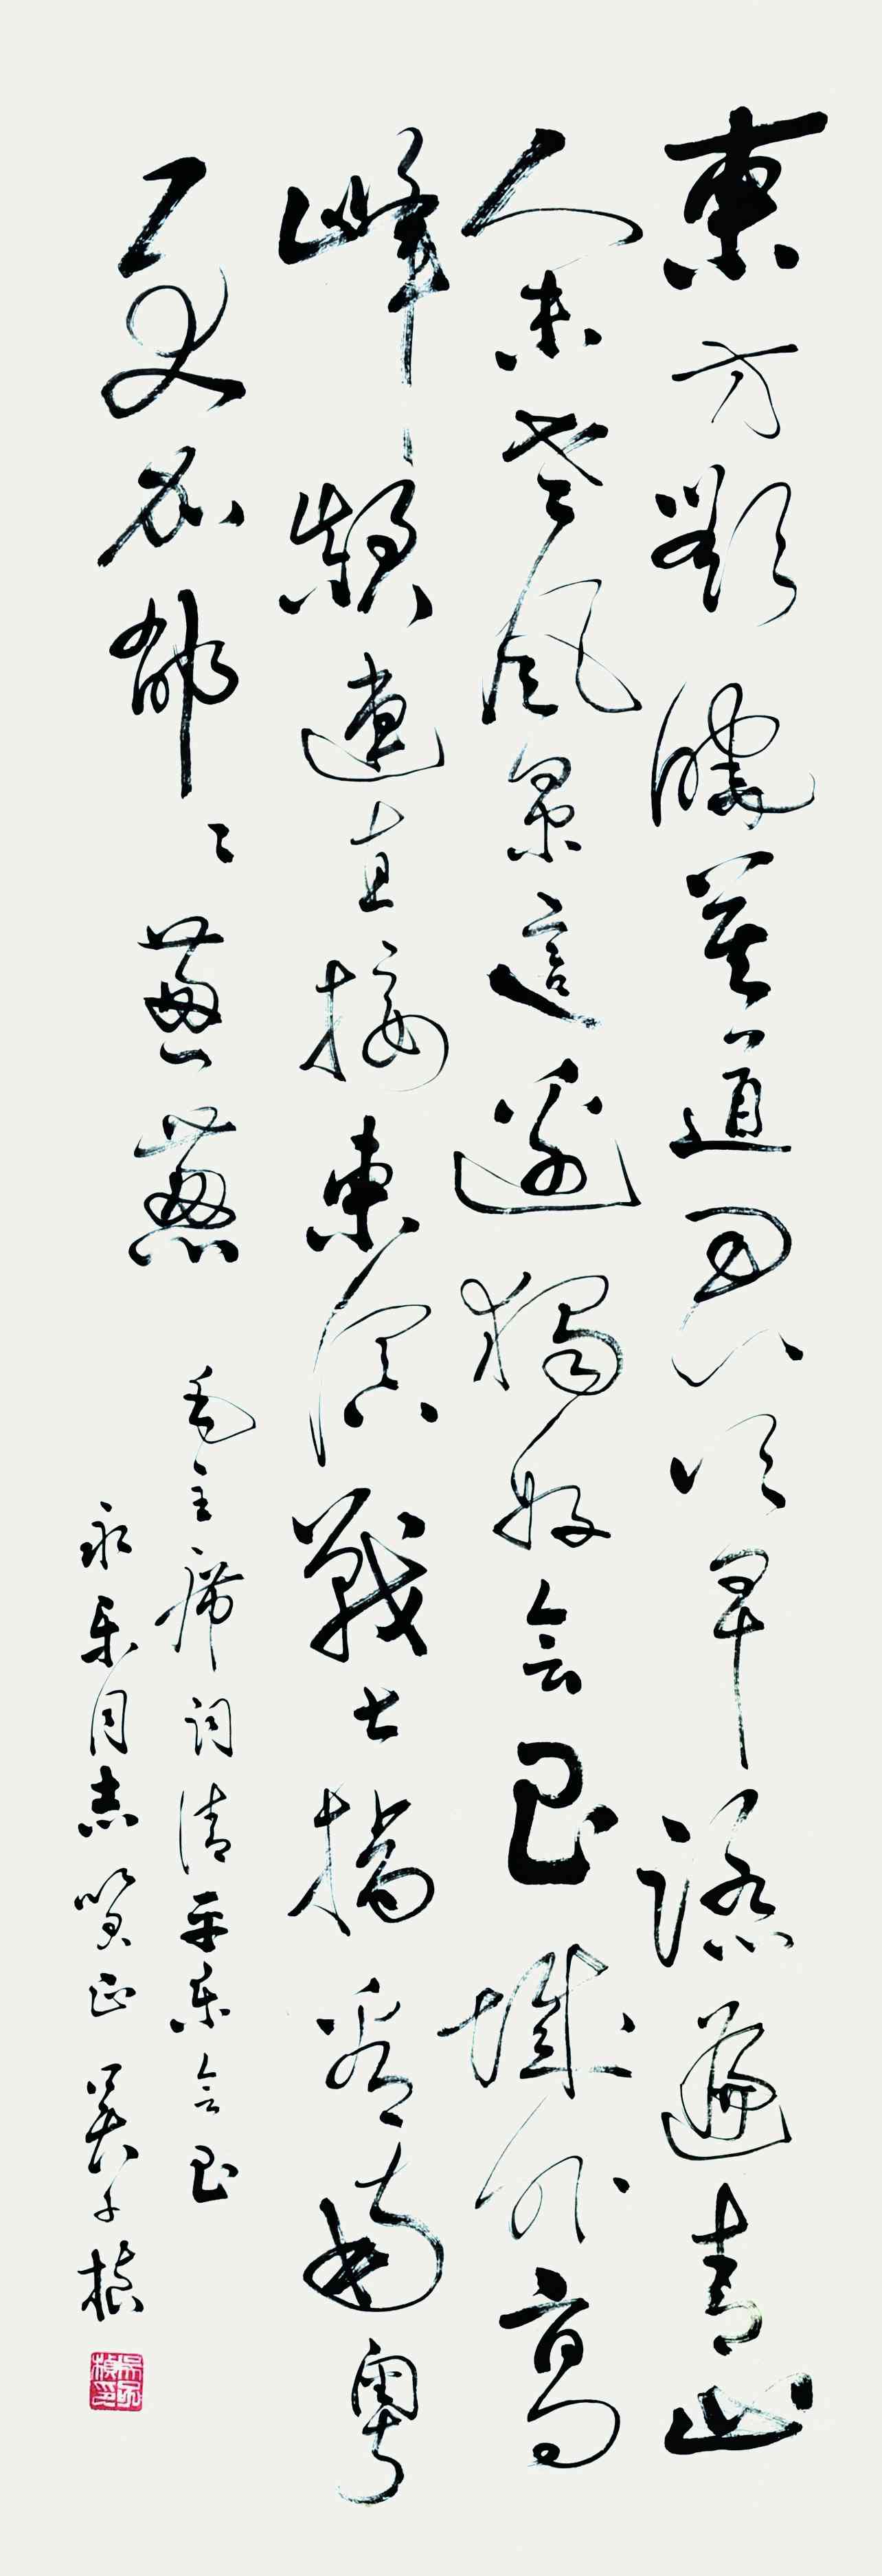 東方欲曉莫道君行早踏遍青山
人未老風景這邊獨好会昌城外高
峰顛連直接東溟戰士指看南粵
更加郁々葱葱
毛主席词清平乐会昌
永乐同志笑正 吴子桢